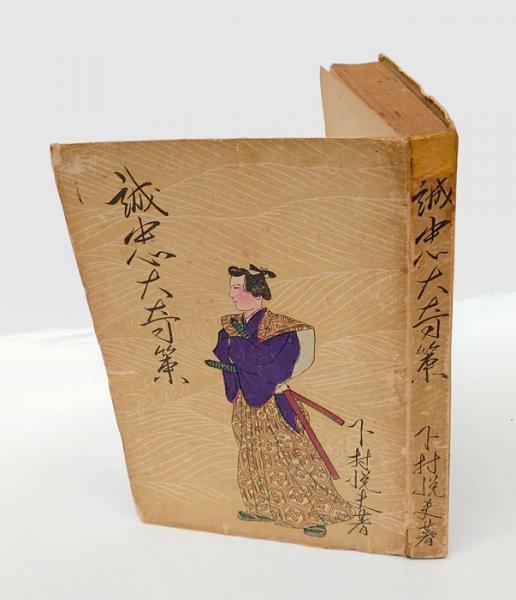 誠忠大奇策
下村悦夫著
誠忠大奇策
下村悦夫著